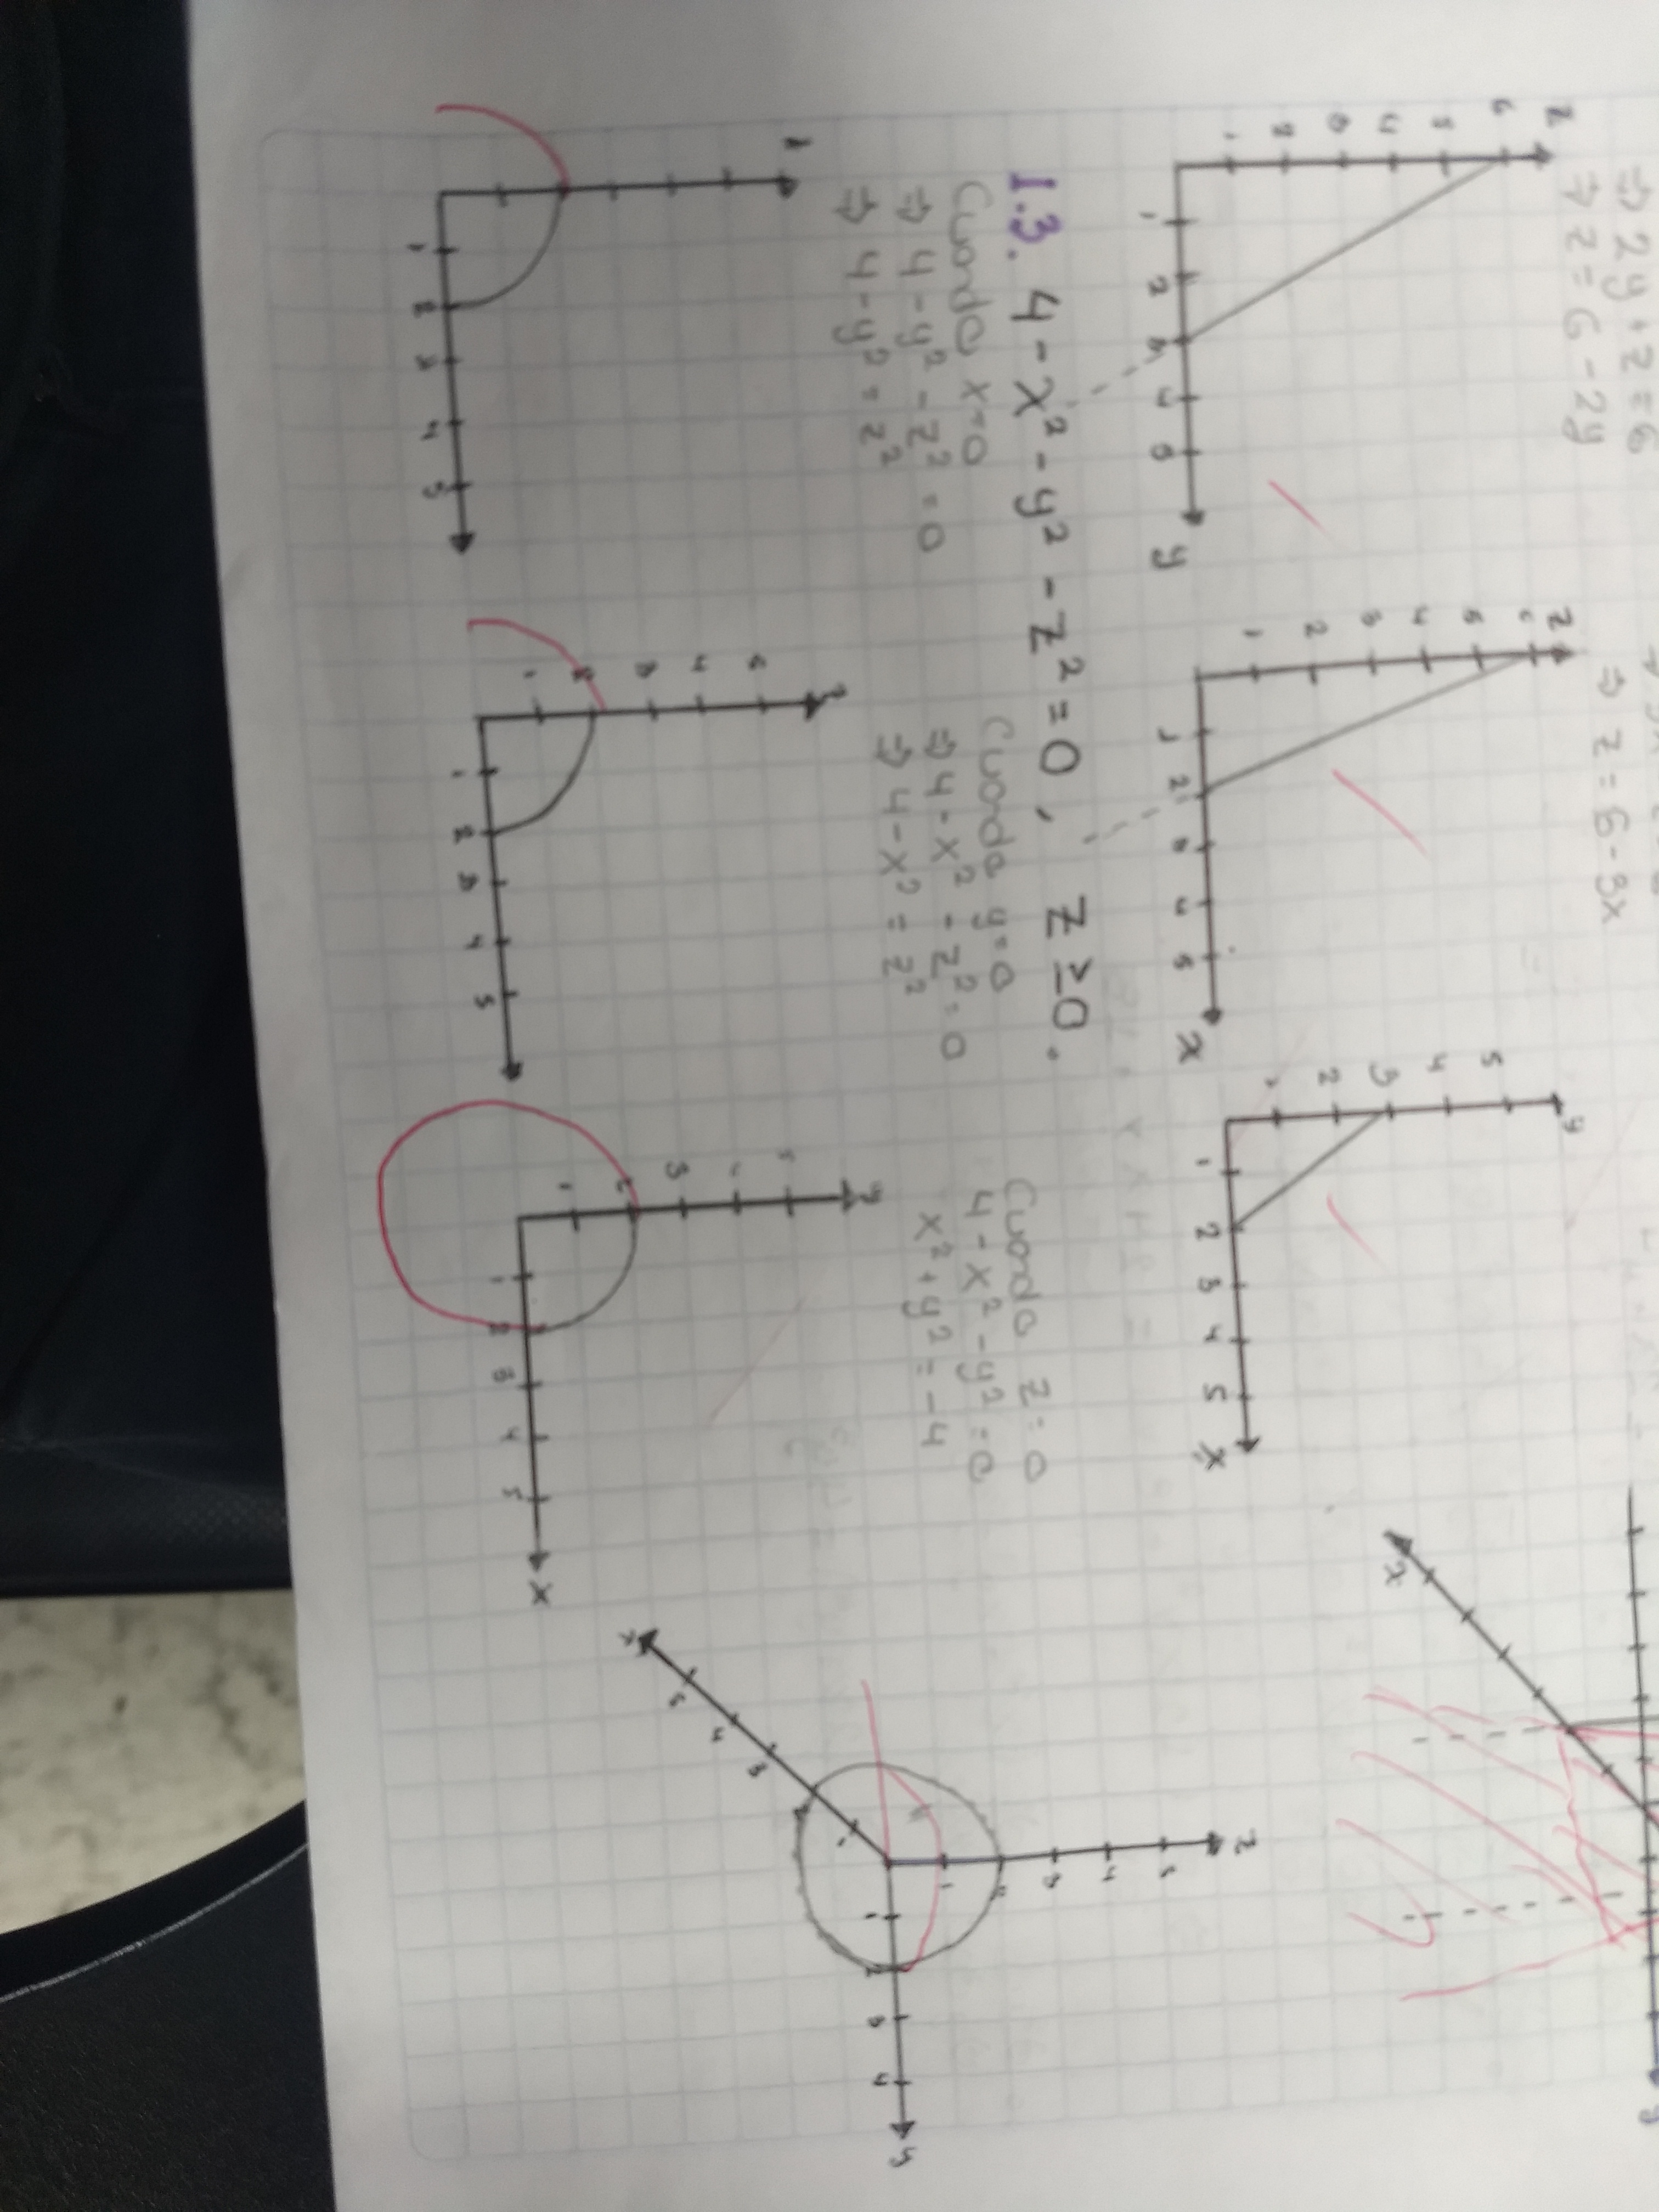 ⇒ 2y + z = 6
⇒ z = 6 - 2y
⇒ z = 6 - 3x
z
6
5
4
3
2
1
1 2 3 4 5 y
z
6
5
4
3
2
1
1 2 3 4 5 x
y
5
4
3
2
1
1 2 3 4 5 x
y
x
1.3. 4 - x² - y² - z² = 0, z ≥ 0.
Cuando x = 0
⇒ 4 - y² - z² = 0
⇒ 4 - y² = z²
Cuando y = 0
⇒ 4 - x² - z² = 0
⇒ 4 - x² = z²
Cuando z = 0
4 - x² - y² = 0
x² + y² = -4
z
5
4
3
2
1
1 2 3 4 y
1
2
3
4
5
x
z
1 2 3 4 5
z
5
4
3
2
1
1 2 3 4 5
y
3
2
1
1 2 3 4 5 x